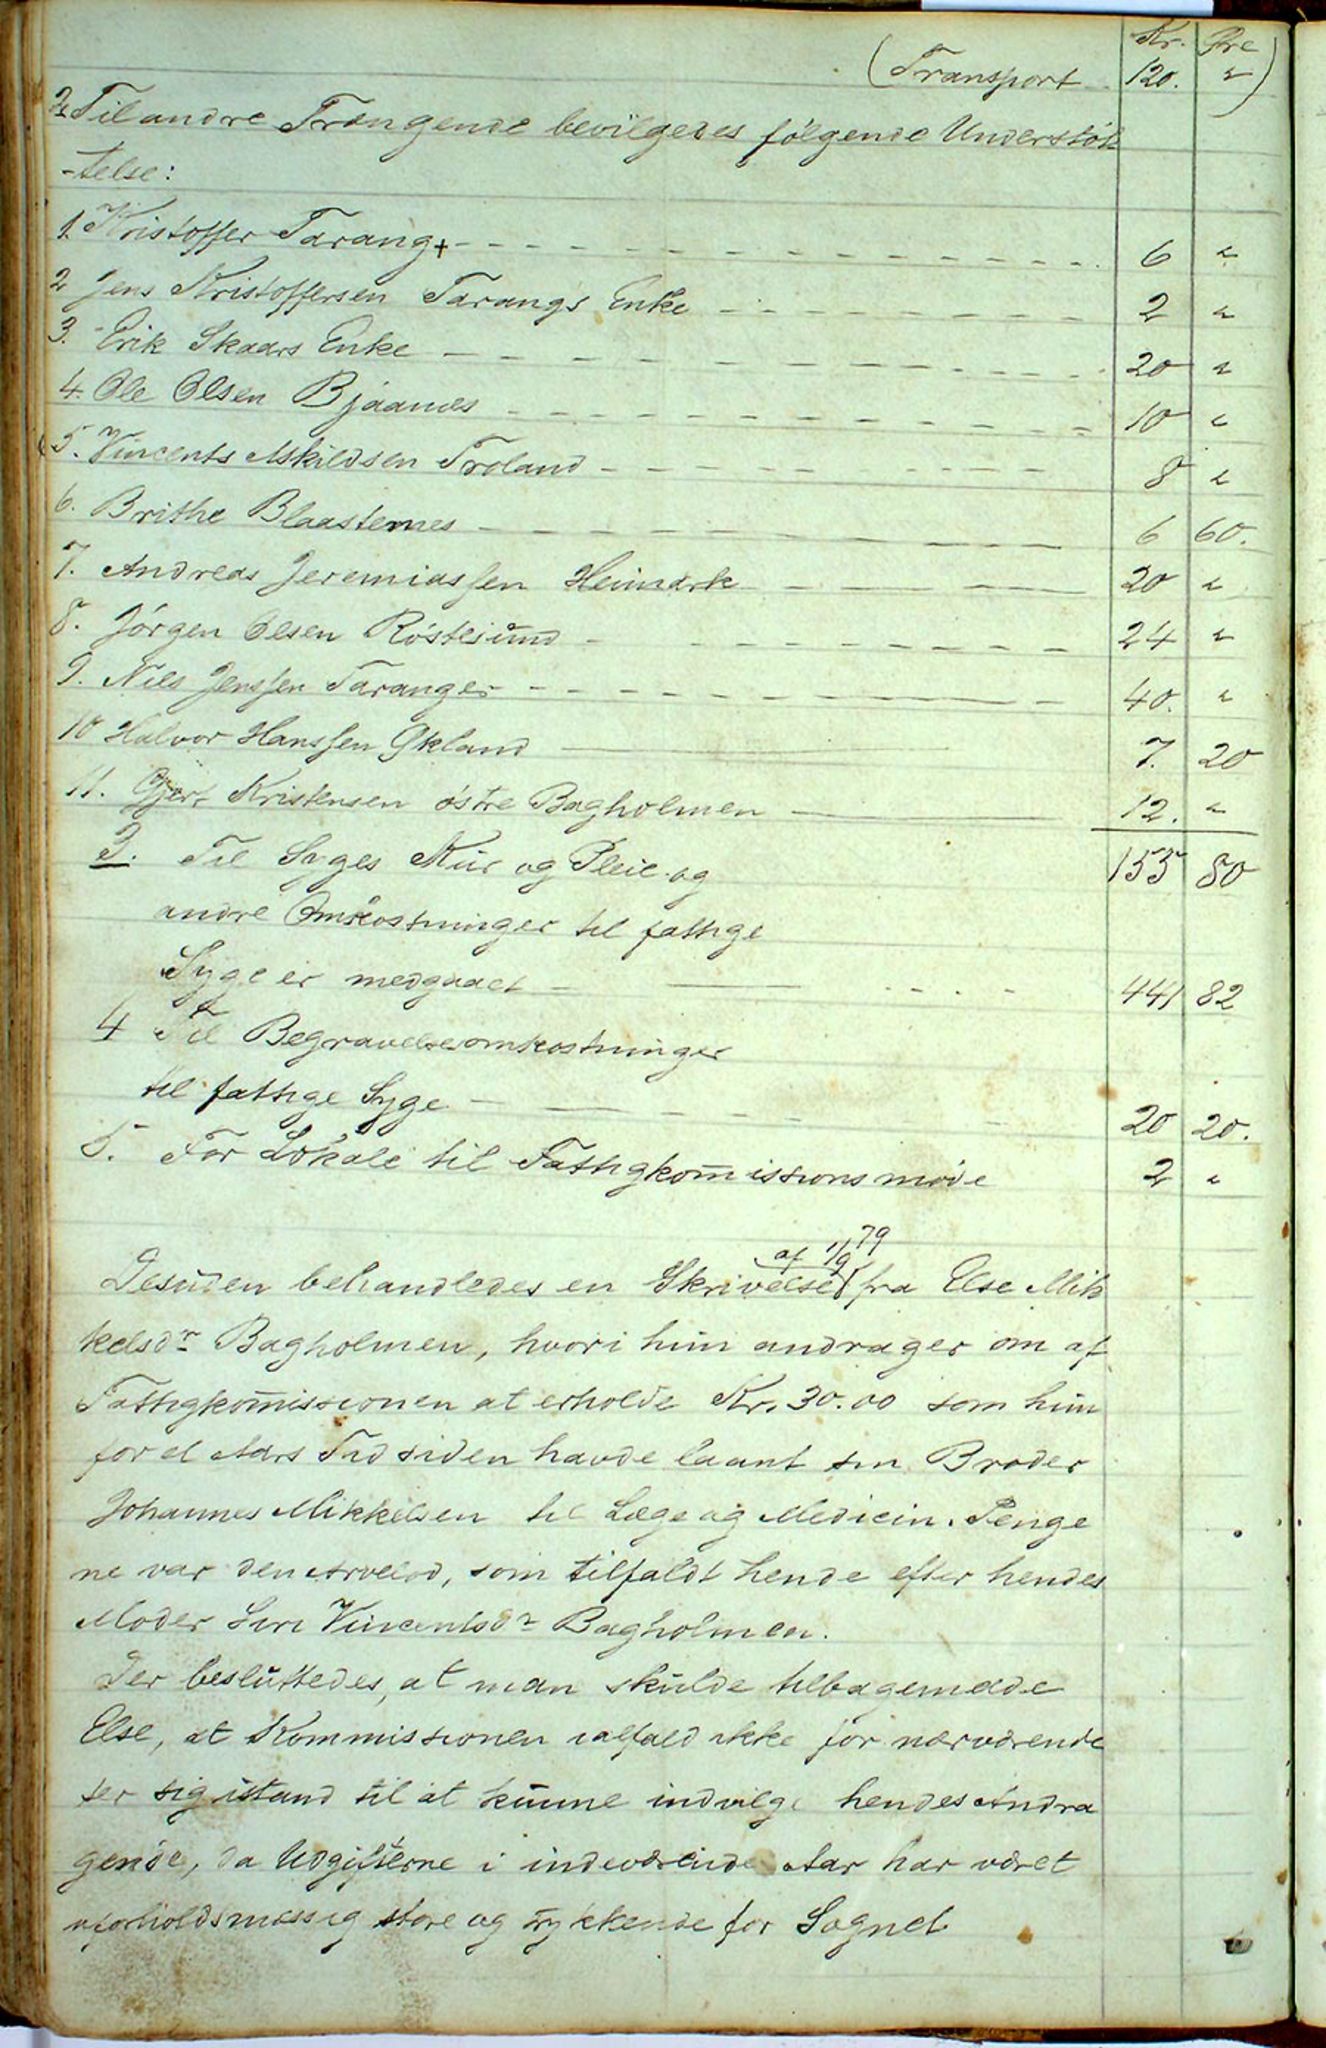 Kr. Øre
(Transport 120. „)
2. Til andre Trængende bevilgedes følgende Understøt-
-telse:
1. Kristoffer Tarang + 6 „
2 Jens Kristoffersen Tarangs Enke 2 „
3. Erik Skaars Enke 20 „
4. Ole Olsen Bjaanæs 10 „
5. Vincents Askildsen Troland 8 „
6. Brithe Blaasternes 6 60.
7. Andreas Jeremiassen Heimark 20 „
8. Jørgen Olsen Røstesund 24 „
9. Nils Jenssen Taranger 40. „
10 Halvor Hanssen Økland 7. 20
11. Gjert Kristensen østre Bagholmen 12. „
155 80
3. Til Syges Kur og Pleie og
andre Omkostninger til fattige
Syge er medgaaet 441 82
4 Til Begravelsesomkostninger
til fattige Syge 20 20.
5. For Lokale til Fattigkom̅issionsmøde 2 „
Desuden behandledes en Skrivelse af 1/9 79 fra Else Mik
kelsdr Bagholmen, hvori hun andrager om af
Fattigkom̅issionen at erholde Kr. 30.00 som hun
for et Aars Tid siden havde laant sin Broder
Johannes Mikkelsen til Læge og Medicin. Penge
ne var den Arvelod, som tilfaldt hende efter hendes
Moder Siri Vincentsdr Bagholmen.
Der besluttedes, at man skulde tilbagemelde
Else, at Kommissionen ialfald ikke for nærværende
ser sig istand til at kunne indvilge hendes Andra
gende, da Udgifterne i indeværende Aar har været
uforholdsmæssig store og trykkende for Sognet